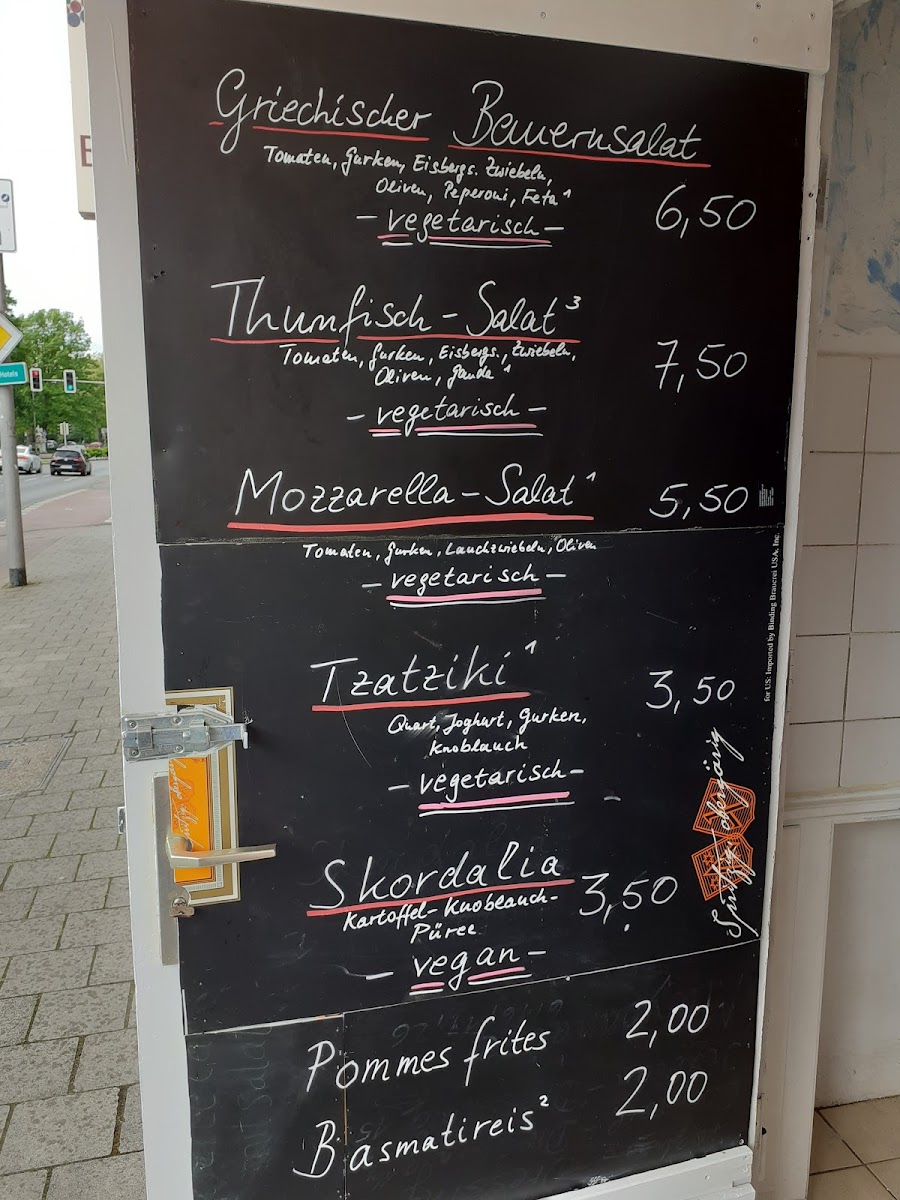 Griechischer Bauernsalat
Tomaten, Gurken, Eisbergs. Zwiebeln,
Oliven, Peperoni, Feta¹
6,50
– vegetarisch –
Thunfisch – Salat³
Tomaten, Gurken, Eisbergs., Zwiebeln,
Oliven, Gauda¹
7,50
– vegetarisch –
Mozzarella – Salat¹ 5,50
Tomaten, Gurken, Lauchzwiebeln, Oliven
– vegetarisch –
for US: Imported by Binding Brauerei USA, Inc.
Tzatziki¹ 3,50
Quark, Joghurt, Gurken,
Knoblauch
– vegetarisch –
Spritzig obergärig
Skordalia 3,50
Kartoffel-Knoblauch-
Püree
– vegan –
Pommes frites 2,00
Basmatireis² 2,00
Hotels